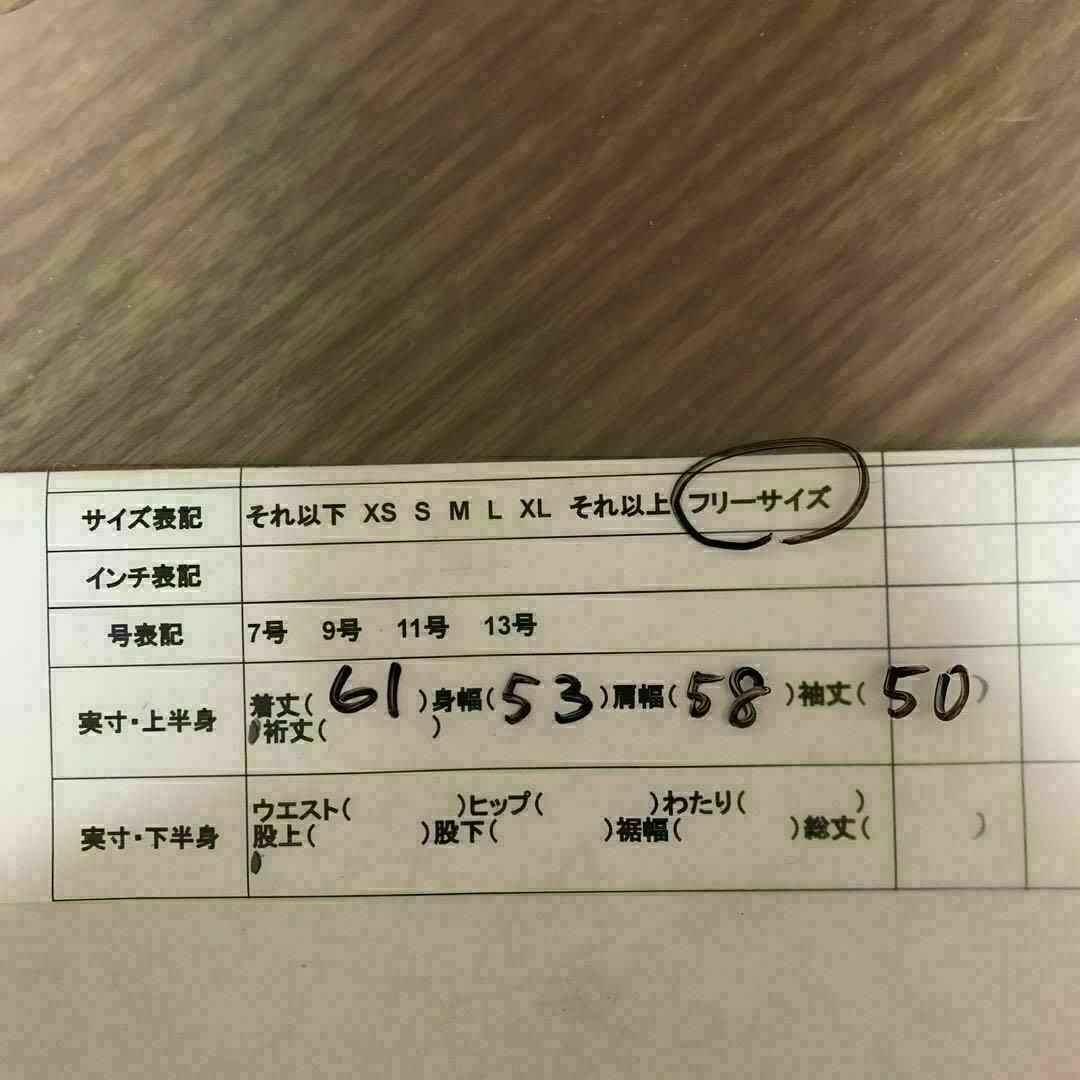 サイズ表記 それ以下 XS S M L XL それ以上 フリーサイズ
インチ表記
号表記 7号 9号 11号 13号
実寸・上半身 着丈( 61 )身幅( 53 )肩幅( 58 )袖丈( 50 )
裄丈( )
実寸・下半身 ウエスト( )ヒップ( )わたり( )
股上( )股下( )裾幅( )総丈( )